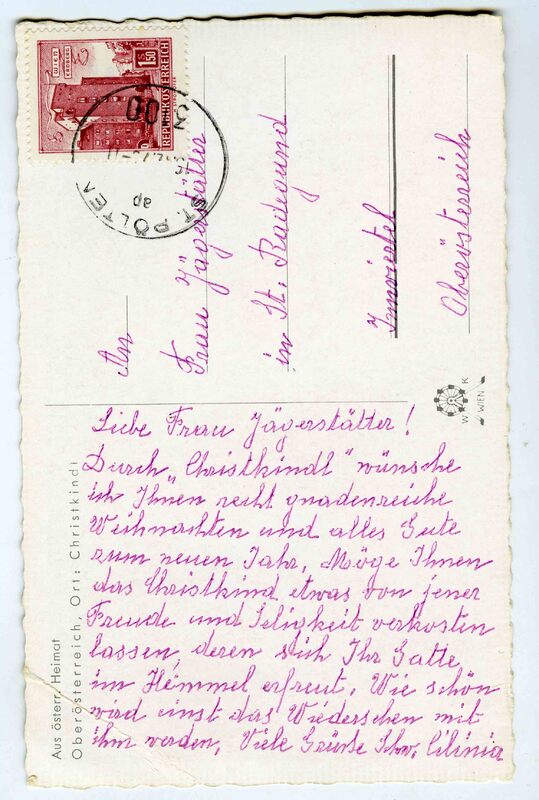 WIEN
ERDBERG
1.50
REPUBLIK ÖSTERREICH
3100
ST. PÖLTEN
ap
An
Frau Jägerstätter
in St. Radegund
Innviertel
Oberösterreich
W K
WIEN
Aus österr. Heimat
Oberösterreich, Ort: Christkindl
Liebe Frau Jägerstätter!
Durch „Christkindl" wünsche
ich Ihnen recht gnadenreiche
Weihnachten und alles Gute
zum neuen Jahr. Möge Ihnen
das Christkind etwas von jener
Freude und Seligkeit verkosten
lassen, deren sich Ihr Gatte
im Himmel erfreut. Wie schön
wird einst das Wiedersehen mit
ihm werden. Viele Grüsse Schw.